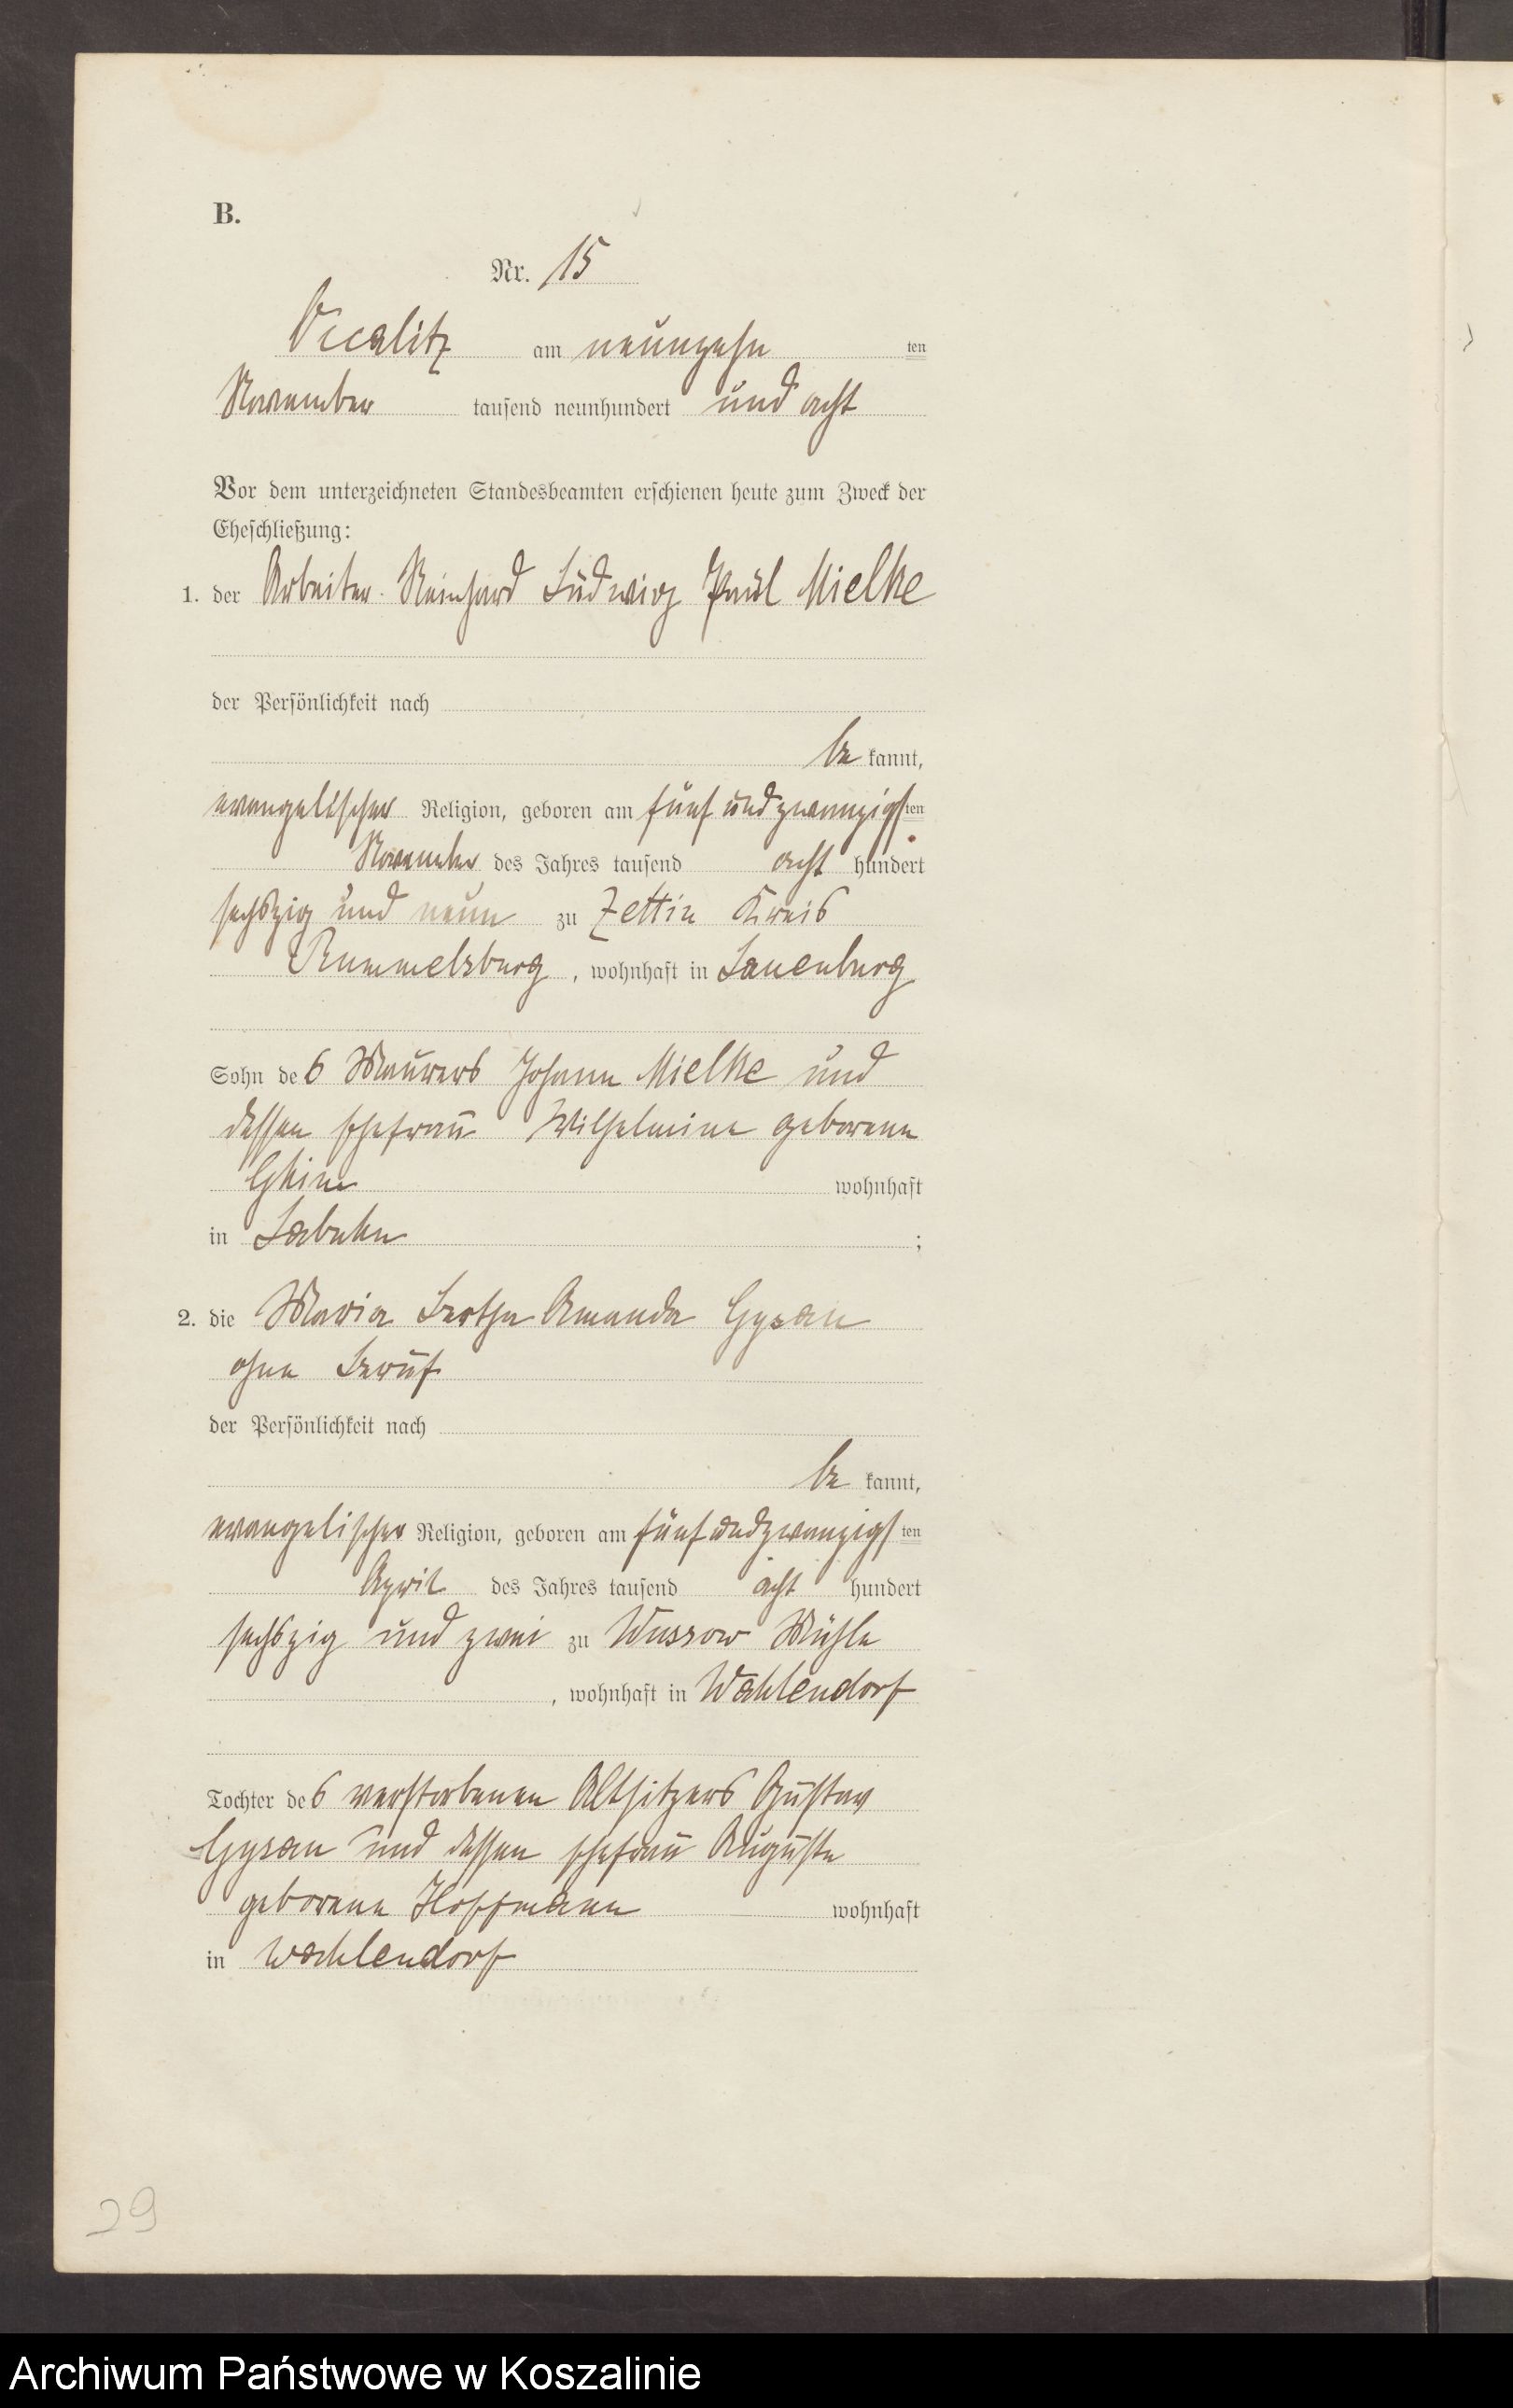 B.
Nr. 15
Occalitz am neunzehn ten
November tausend neunhundert und acht
Vor dem unterzeichneten Standesbeamten erschienen heute zum Zweck der
Eheschließung:
1. der Arbeiter Reinhard Ludwig Paul Mielke
der Persönlichkeit nach
be kannt,
evangelischer Religion, geboren am fünf und zwanzigsten
November des Jahres tausend acht hundert
sechszig und neun zu Zettin Kreis
Rummelsburg, wohnhaft in Lauenburg
Sohn des Maurers Johann Mielke und
dessen Ehefrau Wilhelmine geborene
wohnhaft
in Labuhn ;
2. die Maria Bertha Amanda Gysau
ohne Beruf
der Persönlichkeit nach
be kannt,
evangelischer Religion, geboren am fünf und zwanzigsten
April des Jahres tausend acht hundert
sechszig und zwei zu Wussow Mühle
, wohnhaft in Wahlendorf
Tochter des verstorbenen Altsitzers Gustav
Gysau und dessen Ehefrau Auguste
geborene Hoffmann wohnhaft
in Wahlendorf
29
Archiwum Państwowe w Koszalinie